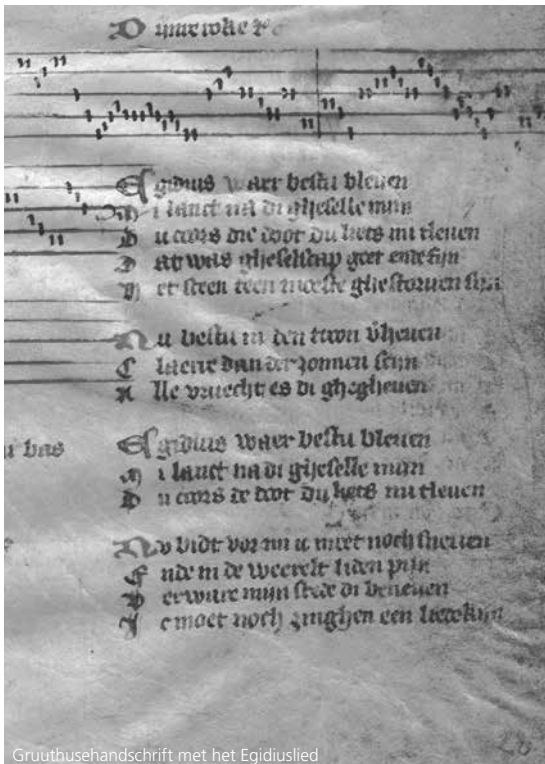 Egidius waer bestu bleuen
Mi lanct na di gheselle mijn
Du coors die doot du liets mi tleuen
Dat was gheselschap goet ende fijn
Het sceen teen moeste ghestoruen sijn
Nu bestu in den troon v̓heuen
Claerre dan der zonnen scijn
Alle vruecht es di ghegheuen
u bas
Egidius waer bestu bleuen
Mi lanct na di gheselle mijn
Du coors de doot du liets mi tleuen
Nv bidt vor mi ic moet noch sneuen
Ende in de weerelt liden pijn
Verware mijn stede di beneuen
Ic moet noch zinghen een liedekijn
28
Gruuthusehandschrift met het Egidiuslied